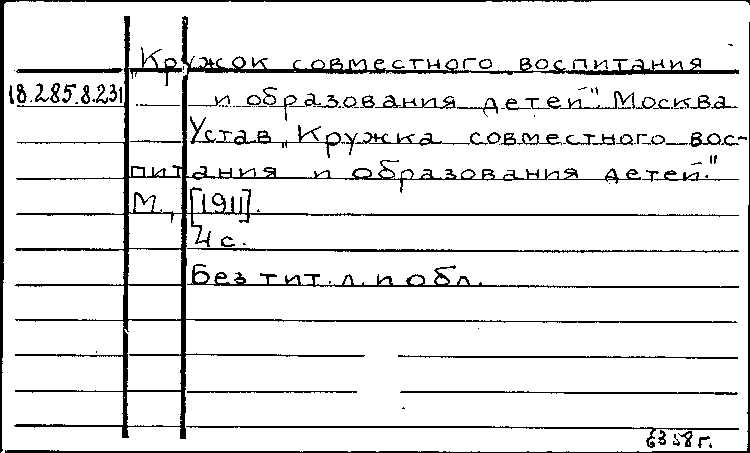 „Кружок совместного воспитания
18.285.8.231
и образования детей". Москва
Устав „Кружка совместного вос-
питания и образования детей."
М., [1911].
4 с.
Без тит. л. и обл.